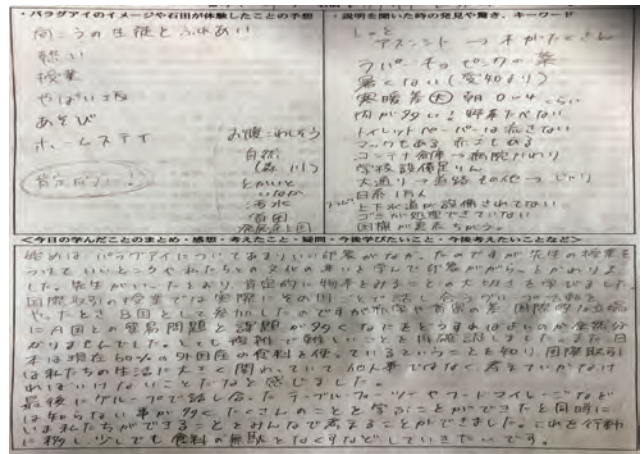 ・パラグアイのイメージや石田が体験したことの予想
向こうの生徒とふれあい
授業
やばい坂
あそび
ホームステイ
お腹こわしそう
自然
(森 川)
とかいと
いなか
汚水
貧困
発展途上国
肯定的に!
・説明を聞いた時の発見や驚き、キーワード
アスンシオン → 木がたくさん
ラパーチョ ピンクの葉
暑くない(愛知より)
寒暖差 大 朝 0~4 くらい
肉が多い! 野菜たべない
トイレットペーパーは流さない
マックもある
コンテナ倉庫 → 病院がわり
学校設備足りん
大通り → 道路 その他 → じゃり
日系1万人
上下水道が設備されてない
ゴミが処理できていない
<今日の学んだことのまとめ・感想・考えたこと・疑問・今後学びたいこと・今後考えたいことなど>
始めは パラグアイについてあまりいい印象がなかったのですが先生の授業を
うけて いいところや私たちとの文化の違いを学んで印象ががらっとかわりま
した。先生がいったとおり、肯定的に物事をみることの大切さを学びました。
国際取引の授業では実際にその国ごとで話し合うグループ活動を
や
に A国との貿易問題と課題が多くなにをどうすればよいのか全然分
かりませんでした。とても複雑で難しいことを再確認しました。また日
本は現在60%の外国産の食料を使っているということを知り、国際取引
は私たちの生活に大きく関わっていて他人事ではなく、考えていかなけ
ればいけないことだなと感じました。
最後にグループで話し合った テーブルフォーツーやフードマイレージなど
は知らない事が多く、たくさんのことを学ぶことができたと同時に
いま私たちができることをみんなで考えることができました。これを行動
に移し、少しでも食料の無駄をなくすなどしていきたいです。